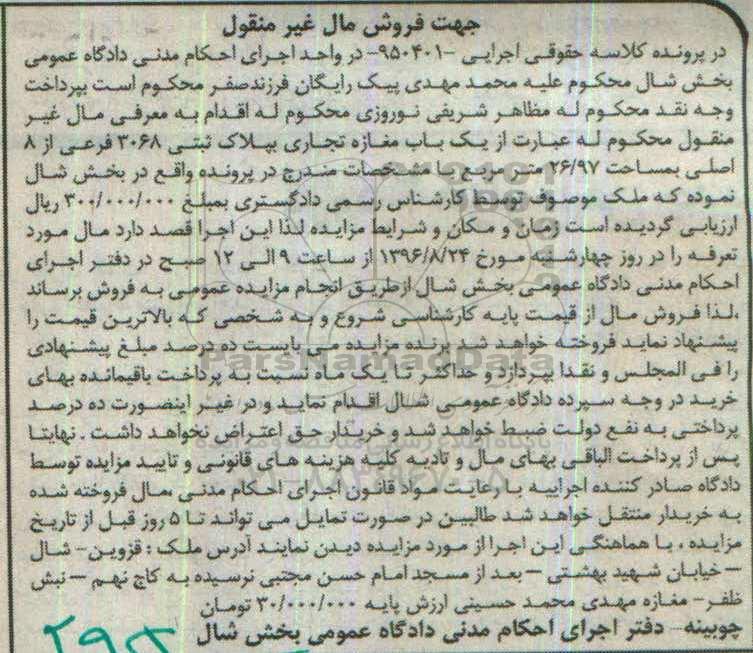 جهت فروش مال غیر منقول
در پرونده کلاسه حقوقی اجرایی -۹۵۰۴۰۱- در واحد اجرای احکام مدنی دادگاه عمومی
بخش شال محکوم علیه محمد مهدی پیک رایگان فرزندصفر محکوم است بپرداخت
وجه نقد محکوم له مظاهر شریفی نوروزی محکوم له اقدام به معرفی مال غیر
منقول محکوم له عبارت از یک باب مغازه تجاری بپلاک ثبتی ۳۰۶۸ فرعی از ۸
اصلی بمساحت ۲۶/۹۷ متر مربع با مشخصات مندرج در پرونده واقع در بخش شال
نموده که ملک موصوف توسط کارشناس رسمی دادگستری بمبلغ ۳۰۰/۰۰۰/۰۰۰ ریال
ارزیابی گردیده است زمان و مکان و شرایط مزایده لذا این اجرا قصد دارد مال مورد
تعرفه را در روز چهارشنبه مورخ ۱۳۹۶/۸/۲۴ از ساعت ۹ الی ۱۲ صبح در دفتر اجرای
احکام مدنی دادگاه عمومی بخش شال ازطریق انجام مزایده عمومی به فروش برساند
،لذا فروش مال از قیمت پایه کارشناسی شروع و به شخصی که بالاترین قیمت را
پیشنهاد نماید فروخته خواهد شد برنده مزایده می بایست ده درصد مبلغ پیشنهادی
را فی المجلس و نقدا بپردازد و حداکثر تا یک ماه نسبت به پرداخت باقیمانده بهای
خرید در وجه سپرده دادگاه عمومی شال اقدام نماید و در غیر اینصورت ده درصد
پرداختی به نفع دولت ضبط خواهد شد و خریدار حق اعتراض نخواهد داشت . نهایتا
پس از پرداخت الباقی بهای مال و تادیه کلیه هزینه های قانونی و تایید مزایده توسط
دادگاه صادر کننده اجراییه با رعایت مواد قانون اجرای احکام مدنی ،مال فروخته شده
به خریدار منتقل خواهد شد طالبین در صورت تمایل می تواند تا ۵ روز قبل از تاریخ
مزایده ، با هماهنگی این اجرا از مورد مزایده دیدن نمایند آدرس ملک : قزوین- شال
– خیابان شهید بهشتی – بعد از مسجد امام حسن مجتبی نرسیده به کاج نهم – نبش
ظفر- مغازه مهدی محمد حسینی ارزش پایه ۳۰/۰۰۰/۰۰۰ تومان
چوبینه- دفتر اجرای احکام مدنی دادگاه عمومی بخش شال
ParsNamadData